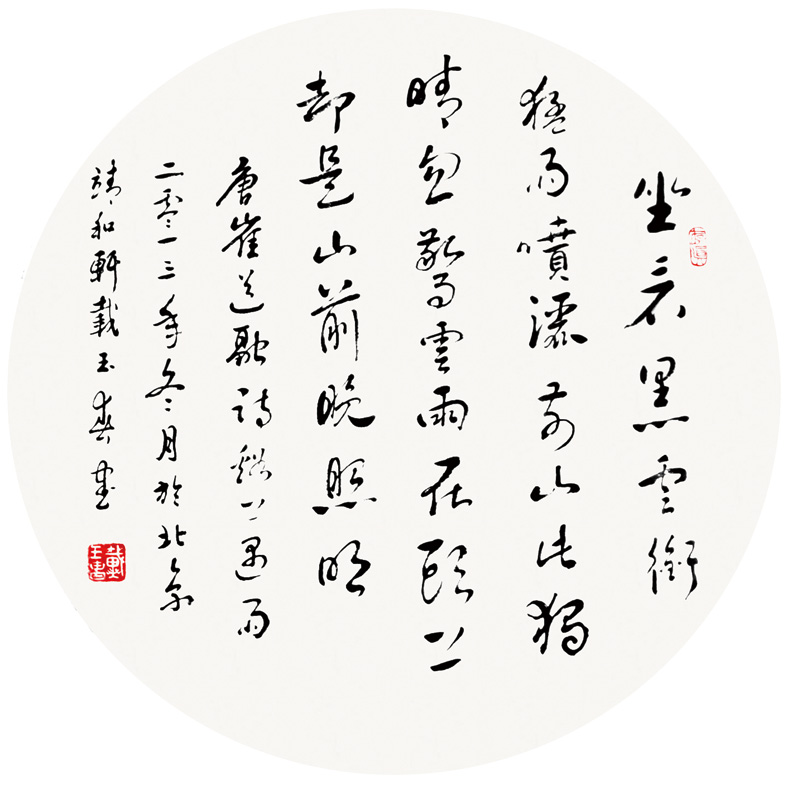 坐看黑雲銜
猛雨噴灑前山此獨
晴忽驚雲雨在頭上
却是山前晚照明
唐崔道融詩谿上遇雨
二零一三年冬月於北京
靖和軒戴玉春書